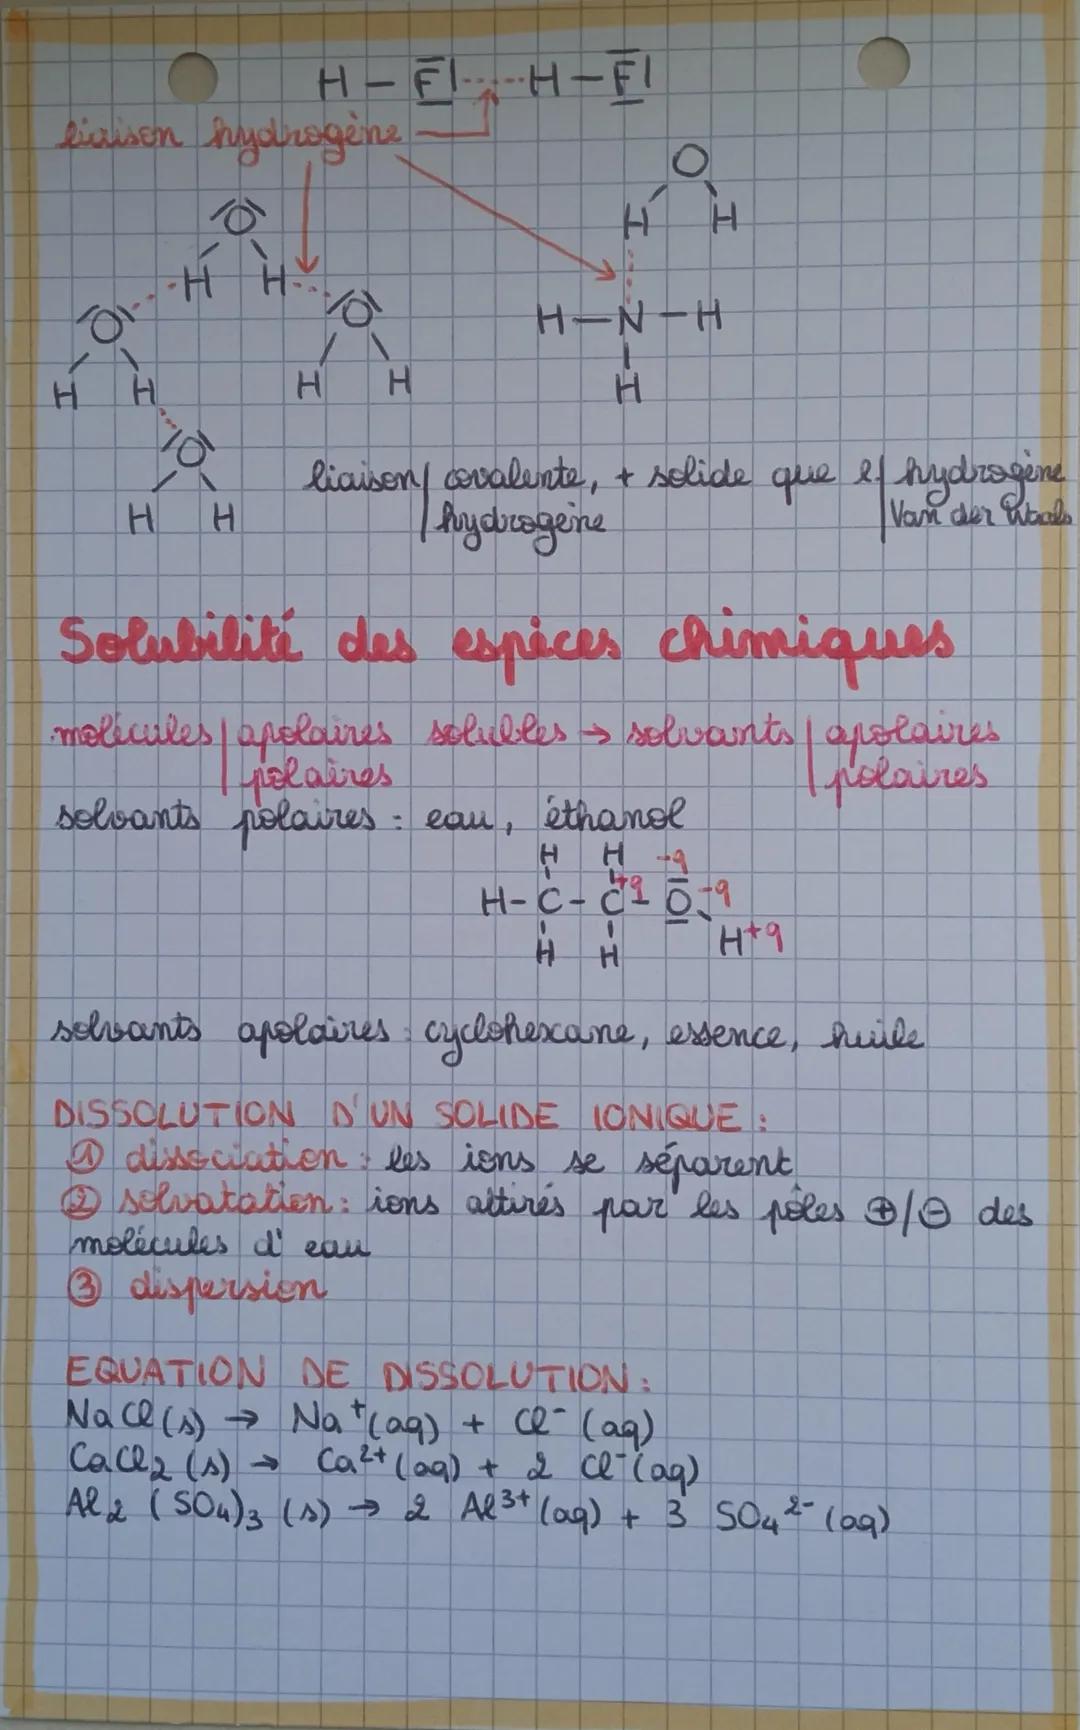 H — F ······ H — F
liaison hydrogène
O
H H
O
H H
O
H H
O
H H
H — N — H
H
O
H H
liaison | covalente, + solide que l | hydrogène
hydrogène | Van der Waals
Solubilité des espèces chimiques
molécules | apolaires solubles → solvants | apolaires
polaires | polaires
solvants polaires : eau, éthanol
H H -q
H - C - C +q - O -q
H H H +q
solvants apolaires : cyclohexane, essence, huile
DISSOLUTION D'UN SOLIDE IONIQUE :
① dissociation : les ions se séparent
② solvatation : ions attirés par les pôles ⊕/⊖ des
molécules d'eau
③ dispersion
EQUATION DE DISSOLUTION :
NaCl (s) → Na⁺ (aq) + Cl⁻ (aq)
CaCl₂ (s) → Ca²⁺ (aq) + 2 Cl⁻ (aq)
Al₂ (SO₄)₃ (s) → 2 Al³⁺ (aq) + 3 SO₄²⁻ (aq)